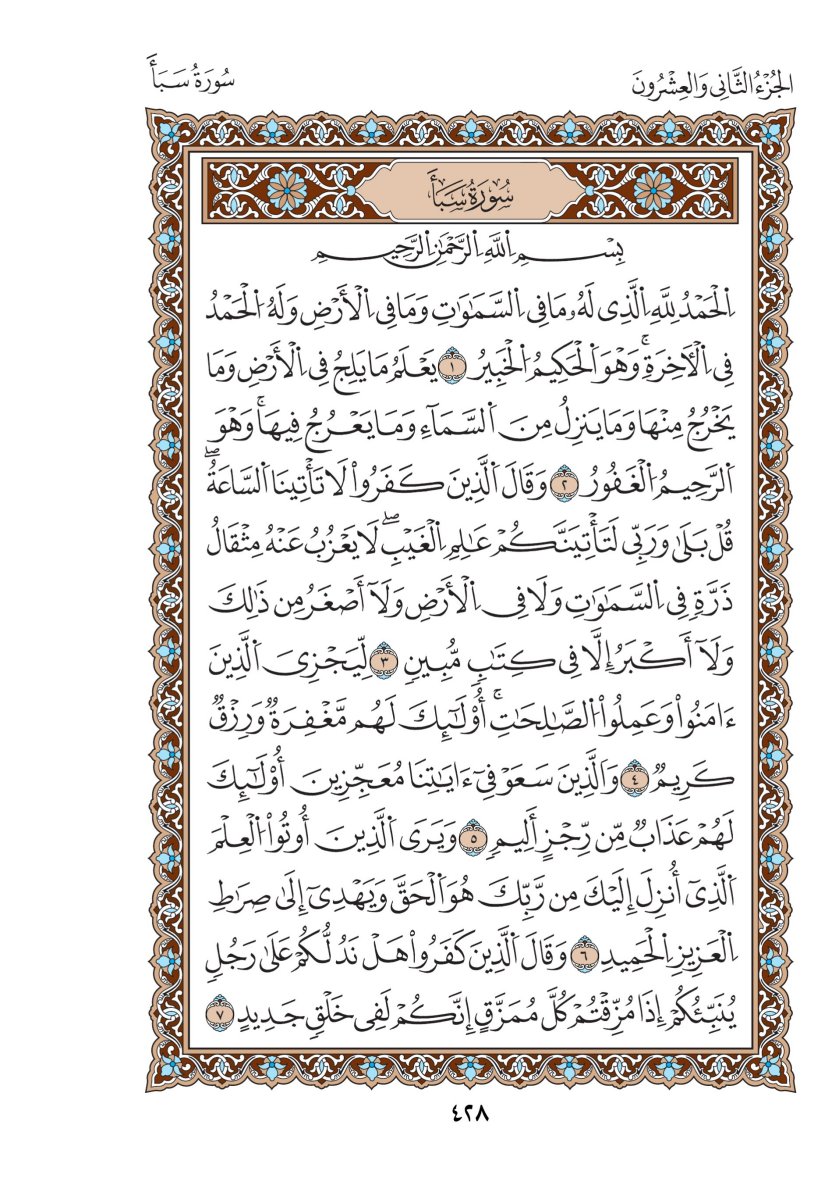 الجُزْءُ الثَّانِي وَالعِشْرُونَ
سُورَةُ سَبَأ
سُورَةُ سَبَأ
بِسْمِ اِ۬للَّهِ اِ۬لرَّحْمَٰنِ اِ۬لرَّحِيمِ
اِ۬لْحَمْدُ لِلَّهِ اِ۬لَّذِى لَهُۥ مَا فِى اِ۬لسَّمَٰوَٰتِ وَمَا فِى اِ۬لْأَرْضِ وَلَهُ اُ۬لْحَمْدُ
فِى اِ۬لْأٓخِرَةِۚ وَهْوَ اَ۬لْحَكِيمُ اُ۬لْخَبِيرُ ١ يَعْلَمُ مَا يَلِجُ فِى اِ۬لْأَرْضِ وَمَا
يَخْرُجُ مِنْهَا وَمَا يَنزِلُ مِنَ اَ۬لسَّمَآءِ وَمَا يَعْرُجُ فِيهَاۚ وَهْوَ
اَ۬لرَّحِيمُ اُ۬لْغَفُورُ ٢ وَقَالَ اَ۬لَّذِينَ كَفَرُواْ لَا تَأْتِينَا اَ۬لسَّاعَةُۖ
قُلْ بَلَىٰ وَرَبِّى لَتَأْتِيَنَّكُمْ عَٰلِمِ اِ۬لْغَيْبِۖ لَا يَعْزُبُ عَنْهُ مِثْقَالُ
ذَرَّةٍ فِى اِ۬لسَّمَٰوَٰتِ وَلَا فِى اِ۬لْأَرْضِ وَلَآ أَصْغَرُ مِن ذَٰلِكَ
وَلَآ أَكْبَرُ إِلَّا فِى كِتَٰبٍ مُّبِينٍ ٣ لِّيَجْزِىَ اَ۬لَّذِينَ
ءَامَنُواْ وَعَمِلُواْ اُ۬لصَّٰلِحَٰتِۚ أُوْلَٰٓئِكَ لَهُم مَّغْفِرَةٌ وَرِزْقٌ
كَرِيمٌ ٤ وَالَّذِينَ سَعَوْ فِىٓ ءَايَٰتِنَا مُعَجِّزِينَ أُوْلَٰٓئِكَ
لَهُمْ عَذَابٌ مِّن رِّجْزٍ أَلِيمٍ ٥ وَيَرَى اَ۬لَّذِينَ أُوتُواْ اُ۬لْعِلْمَ
اَ۬لَّذِىٓ أُنزِلَ إِلَيْكَ مِن رَّبِّكَ هُوَ اَ۬لْحَقَّ وَيَهْدِىٓ إِلَىٰ صِرَٰطِ
اِ۬لْعَزِيزِ اِ۬لْحَمِيدِ ٦ وَقَالَ اَ۬لَّذِينَ كَفَرُواْ هَلْ نَدُلُّكُمْ عَلَىٰ رَجُلٍ
يُنَبِّئُكُمْ إِذَا مُزِّقْتُمْ كُلَّ مُمَزَّقٍ إِنَّكُمْ لَفِى خَلْقٍ جَدِيدٍ ٧
٤٢٨